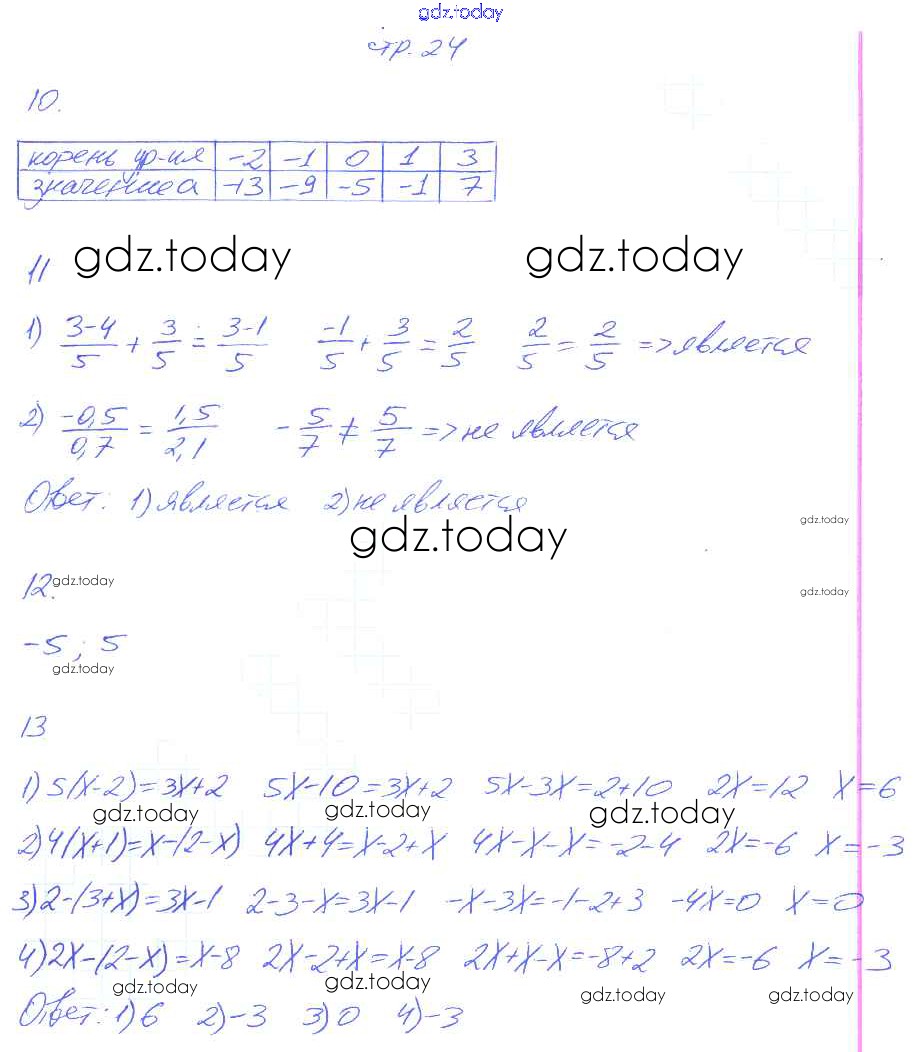 gdz.today
стр. 24
10.
корень ур-ия -2 -1 0 1 3
значение a -13 -9 -5 -1 7
gdz.today gdz.today
11
1) 3-4/5 + 3/5 = 3-1/5 -1/5 + 3/5 = 2/5 2/5 = 2/5 => является
2) -0,5/0,7 = 1,5/2,1 -5/7 ≠ 5/7 => не является
Ответ: 1) является 2) не является
gdz.today
gdz.today
12.
gdz.today
gdz.today
-5 ; 5
gdz.today
13
1) 5(x-2)=3x+2 5x-10=3x+2 5x-3x=2+10 2x=12 x=6
gdz.today gdz.today gdz.today
2) 4(x+1)=x-(2-x) 4x+4=x-2+x 4x-x-x=-2-4 2x=-6 x=-3
3) 2-(3+x)=3x-1 2-3-x=3x-1 -x-3x=-1-2+3 -4x=0 x=0
4) 2x-(2-x)=x-8 2x-2+x=x-8 2x+x-x=-8+2 2x=-6 x=-3
gdz.today gdz.today gdz.today gdz.today
Ответ: 1) 6 2) -3 3) 0 4) -3